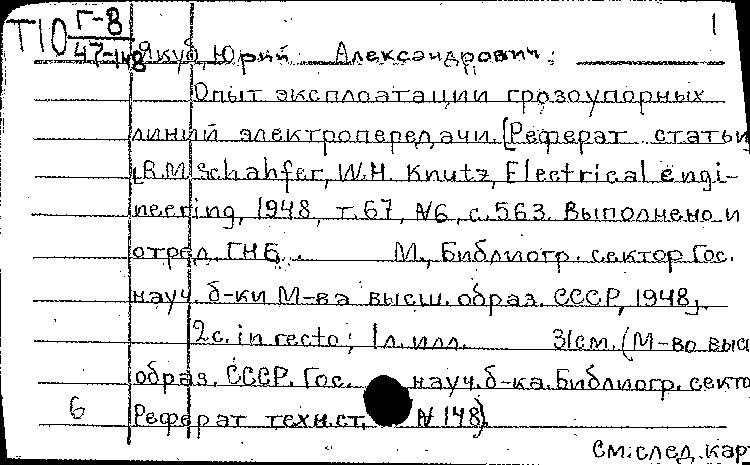 Т10 Г-8 1
47-148
Якуб, Юрий Александрович.
Опыт эксплоатации грозоупорных
линий электропередачи. [Реферат статьи
R.M. Schahfer, W.H. Knutz, Electrical engi-
neering, 1948, т.67, №6, с.563. Выполнено и
отред. ГНБ. М., Библиогр. сектор Гос.
науч. б-ки М-ва высш. образ. СССР, 1948].
2с. in recto; 1л. илл. 31см. (М-во высш
образ. СССР. Гос. науч. б-ка. Библиогр. секто
6 Реферат техн.ст. N 148).
См. след. кар